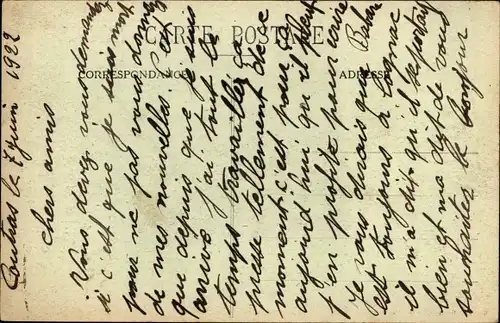 CARTE POSTALE
CORRESPONDANCE
ADRESSE
Coutras le 7 Juin 1922
chers amis
Vous devez vous demander
si c'est que je suis mort
pour ne pas vous donner
de mes nouvelles. C'est
qui depuis que je suis
arrivé j'ai tout le
temps travaillé. Sa
presse tellement de ce
moment c'est pour
aujourd'hui qu'il pleut
j'en profite pour écrire
Je vous dirais que
est toujours à Cognac
il m'a dit qu'il se portait
bien et m'a dit de vous
souhaiter le bonjour